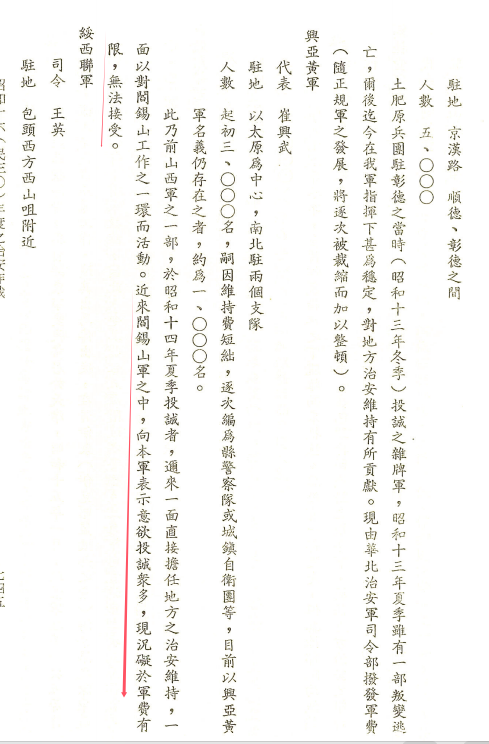 駐地　京漢路　順德、彰德之間
人數　五、〇〇〇
土肥原兵團駐彰德之當時（昭和十三年冬季）投誠之雜牌軍，昭和十三年夏季雖有一部叛變逃
亡，爾後迄今在我軍指揮下甚爲穩定，對地方治安維持有所貢獻。現由華北治安軍司令部撥發軍費
（隨正規軍之發展，將逐次被裁縮而加以整頓）。
興亞黃軍
代表　崔興武
駐地　以太原爲中心，南北駐兩個支隊
人數　起初三、〇〇〇名，嗣因維持費短絀，逐次編爲縣警察隊或城鎮自衛團等，目前以興亞黃
軍名義仍存在之者，約爲一、〇〇〇名。
此乃前山西軍之一部，於昭和十四年夏季投誠者，邇來一面直接擔任地方之治安維持，一
面以對閻錫山工作之一環而活動。近來閻錫山軍之中，向本軍表示意欲投誠衆多，現況礙於軍費有
限，無法接受。
綏西聯軍
司令　王英
駐地　包頭西方西山咀附近